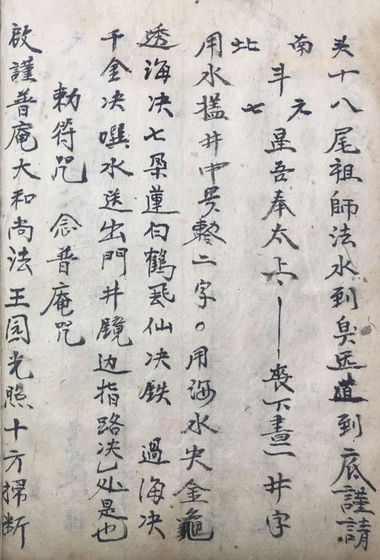 头十八尾祖師法水到臭道到底謹請
南北斗七星吾奉太上丧下畫一井字
用水搵井中号二字。用海水夬金龜
透海决七朵蓮白鶴飛仙决鉄 過海决
千金决噀水送出門井鏡边指路决处是也
勅符咒 念普庵咒
啟謹普庵大和尚法王国光照十方掃断